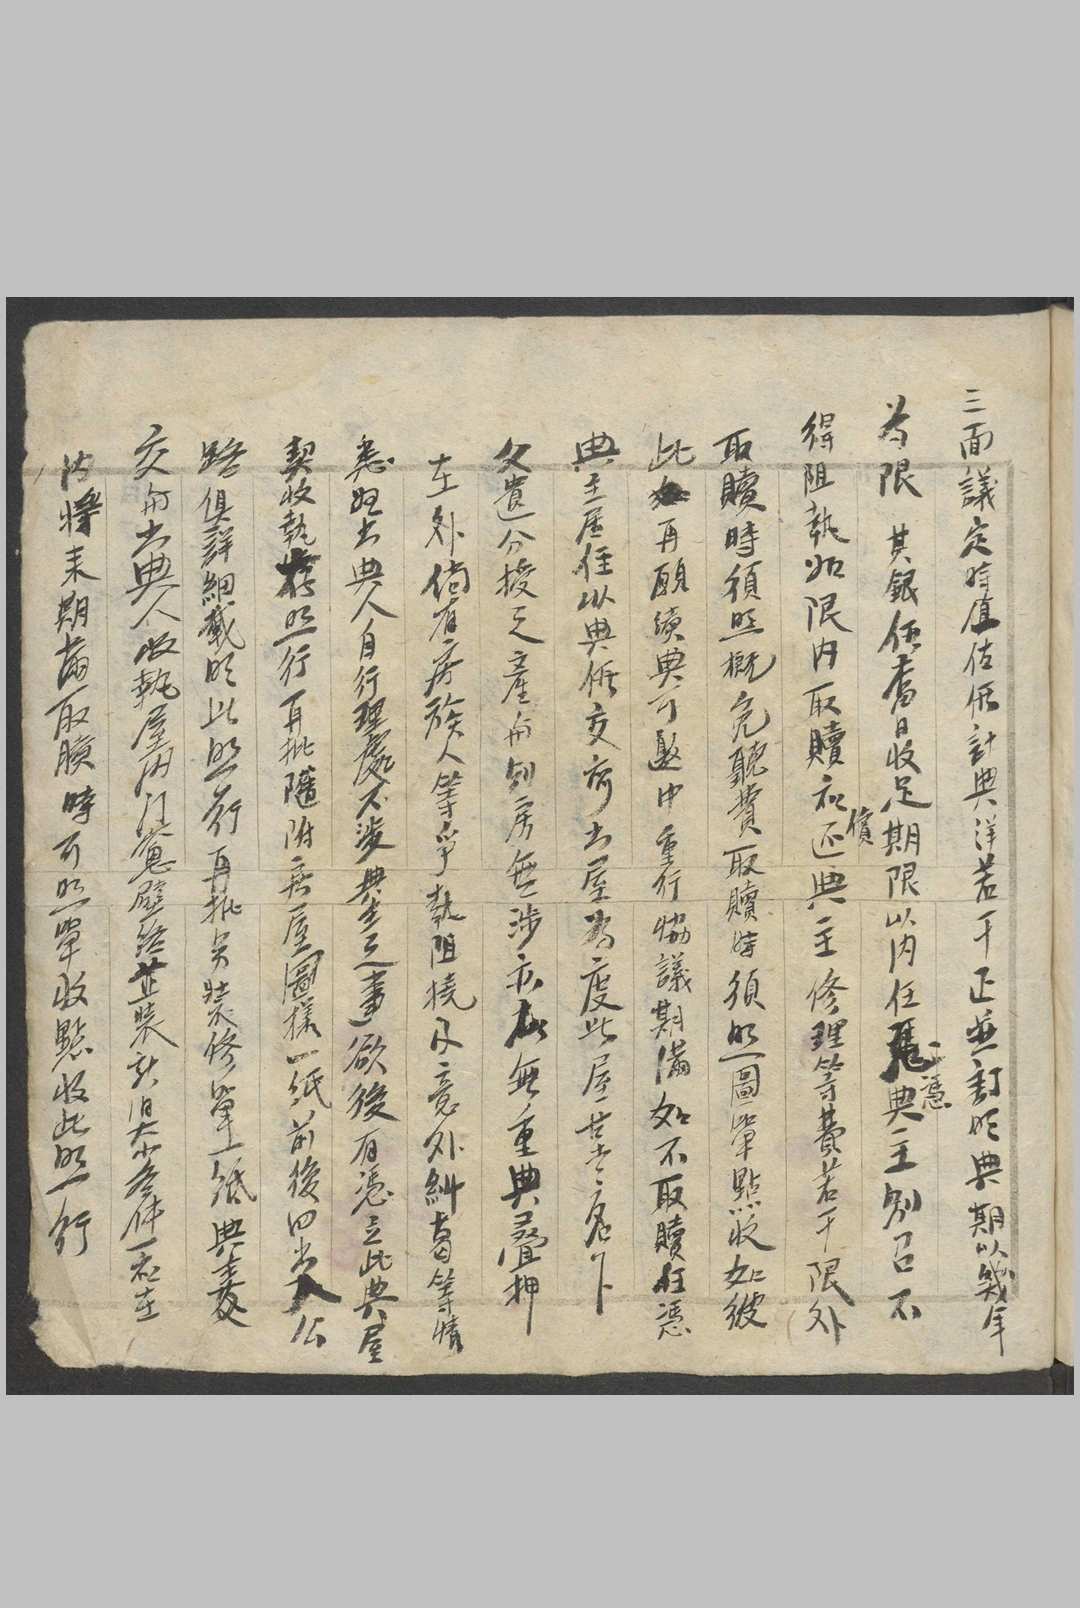 三面議定時值估價計典洋若干正並訂明典期以幾年
為限 其銀価當日收足期限以内任憑典主别召不
得阻執如限内取贖和还償典主修理等費若干限外
取贖時須照概免聽費取贖時須照圖單點收如彼
此再願續典可邀中重行協議期滿如不取贖任憑
典主居住以典価交齊出屋為度此屋
父遺分授之產與别房無涉亦無重典疊押
在外倘有房族人等爭執阻撓及意外糾葛等情
悉归出典人自行理處不涉典主之事欲後有憑立此典屋
契收執存照行再批隨附弄屋圖樣一紙前後四岀入公
路俱詳細載明此照行再批另裝修單一紙典主
交與出典人收執屋内门窓壁等並裝新旧大小各件一应在
内將来期滿取贖時可照單收點收此照行